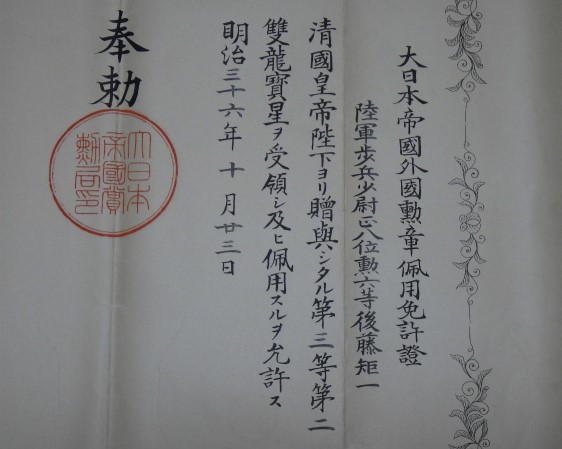 大日本帝國外國勲章佩用免許證
陸軍歩兵少尉正八位勲六等後藤矩一
清國皇帝陛下ヨリ贈與シタル第三等第二
雙龍寶星ヲ受領シ及ヒ佩用スルヲ允許ス
明治三十六年十月廿三日
奉勅
大日本
帝國賞
勲局印